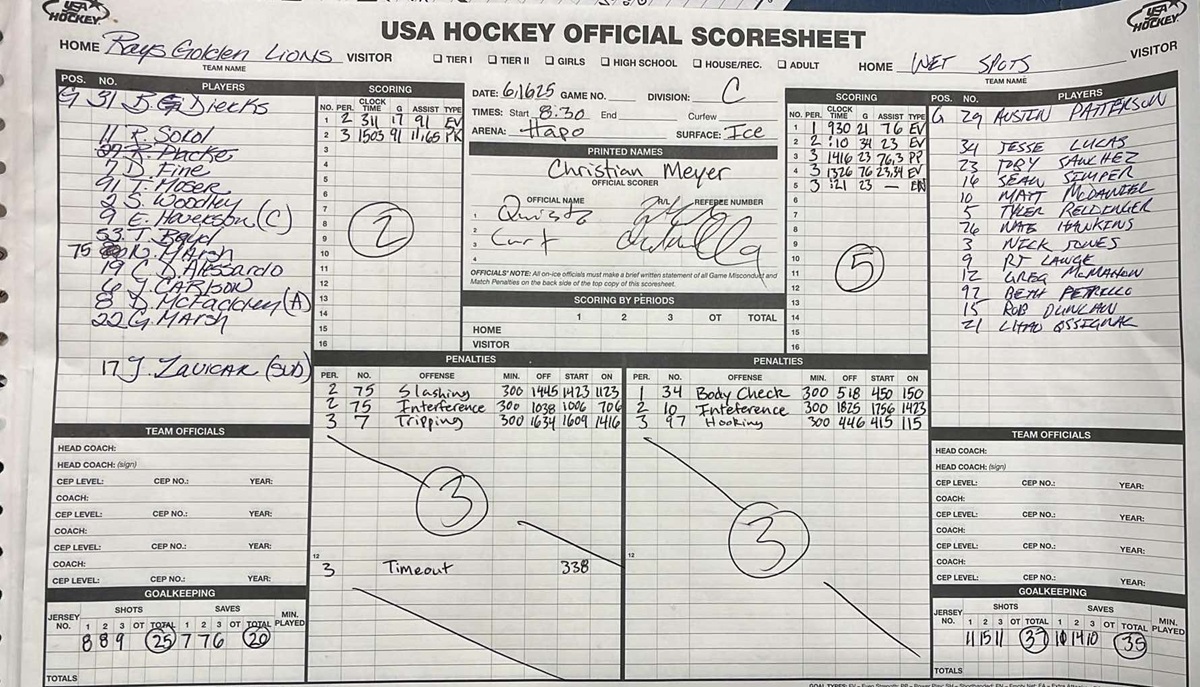 USA HOCKEY
USA HOCKEY OFFICIAL SCORESHEET
USA HOCKEY
HOME Rays Golden Lions VISITOR
TEAM NAME
☐ TIER I ☐ TIER II ☐ GIRLS ☐ HIGH SCHOOL ☐ HOUSE/REC. ☐ ADULT
HOME WET SPOTS VISITOR
TEAM NAME
POS. NO. PLAYERS
G 31 B. Diecks
11 R. Sokol
7 D. Fine
91 T. Moser
2 S. Woodley
9 E. Haverson (C)
53. T. Boyd
75 R. Marsh
19 C. D'Alessardo
6 J. CARLSON
8 D. McFadden (A)
22 G. Marsh
17 J. Zavicar (SUB)
SCORING
NO. PER. CLOCK TIME G ASSIST TYPE
1 2 311 17 91 EV
2 3 1503 91 11,65 PK
3
4
5
6
7
8
9
10
11
12
13
14
15
16
2
DATE: 61625 GAME NO. DIVISION: C
TIMES: Start 8:30 End Curfew
ARENA: Hapo SURFACE: Ice
PRINTED NAMES
Christian Meyer
OFFICIAL SCORER
OFFICIAL NAME REFEREE NUMBER
1
2 Curt
3
4
OFFICIALS' NOTE: All on-ice officials must make a brief written statement of all Game Misconduct and
Match Penalties on the back side of the top copy of this scoresheet.
SCORING BY PERIODS
1 2 3 OT TOTAL
HOME
VISITOR
SCORING
NO. PER. CLOCK TIME G ASSIST TYPE
1 1 930 21 76 EV
2 2 :10 34 23 EV
3 3 1416 23 76,3 PP
4 3 1326 76 23,34 EV
5 3 :21 23 — EN
6
7
8
9
10
11
12
13
14
15
16
5
POS. NO. PLAYERS
G 29 AUSTIN PATTERSON
34 JESSE LUCAS
23 TORY SANCHEZ
16 SEAN SIMPER
10 MATT McDANIEL
5 TYLER REDDINGER
26 NATE HAWKINS
3 NICK JONES
9 RJ LANGE
12 GREG McMAHON
97 BETH PETRILLO
15 ROB DUNCAN
21
PENALTIES
PER. NO. OFFENSE MIN. OFF START ON
2 75 Slashing 300 1445 1423 1123
2 75 Interference 300 1038 1006 706
3 7 Tripping 300 1634 1609 1416
3
12
3 Timeout 338
PENALTIES
PER. NO. OFFENSE MIN. OFF START ON
1 34 Body Check 300 518 450 150
2 10 Inteference 300 1825 1756 1423
3 97 Hooking 300 446 415 115
3
12
TEAM OFFICIALS
HEAD COACH:
HEAD COACH: (sign)
CEP LEVEL: CEP NO.: YEAR:
COACH:
CEP LEVEL: CEP NO.: YEAR:
COACH:
CEP LEVEL: CEP NO.: YEAR:
COACH:
CEP LEVEL: CEP NO.: YEAR:
GOALKEEPING
JERSEY NO. SHOTS 1 2 3 OT TOTAL SAVES 1 2 3 OT TOTAL MIN. PLAYED
8 8 9 25 7 7 6 20
TOTALS
TEAM OFFICIALS
HEAD COACH:
HEAD COACH: (sign)
CEP LEVEL: CEP NO.: YEAR:
COACH:
CEP LEVEL: CEP NO.: YEAR:
COACH:
CEP LEVEL: CEP NO.: YEAR:
COACH:
CEP LEVEL: CEP NO.: YEAR:
GOALKEEPING
JERSEY NO. SHOTS 1 2 3 OT TOTAL SAVES 1 2 3 OT TOTAL MIN. PLAYED
11 15 11 37 14 10 35
TOTALS